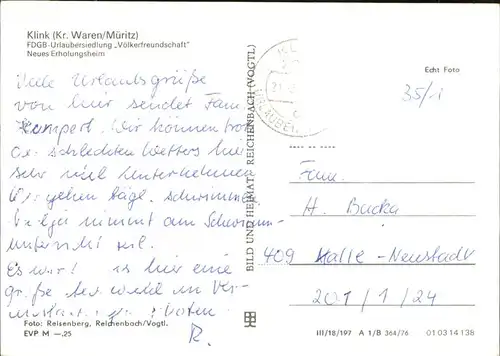 Klink (Kr. Waren/Müritz)
FDGB-Urlaubersiedlung „Völkerfreundschaft"
Neues Erholungsheim
Viele Urlaubsgrüße
von hier sendet Fam.
Wir können trotz
schlechten Wetters hier
sehr viel unternehmen
gehen tägl. schwimmen
nimmt am Schwimm-
unterricht teil.
Es wird hier eine
große
R.
Foto: Reisenberg, Reichenbach/Vogtl.
EVP M —.25
BILD UND HEIMAT REICHENBACH (VOGTL)
Echt Foto
35/1
Fam.
H. Backa
409 Halle-Neustadt
201/1/24
III/18/197 A 1/B 364/76 01 03 14 138